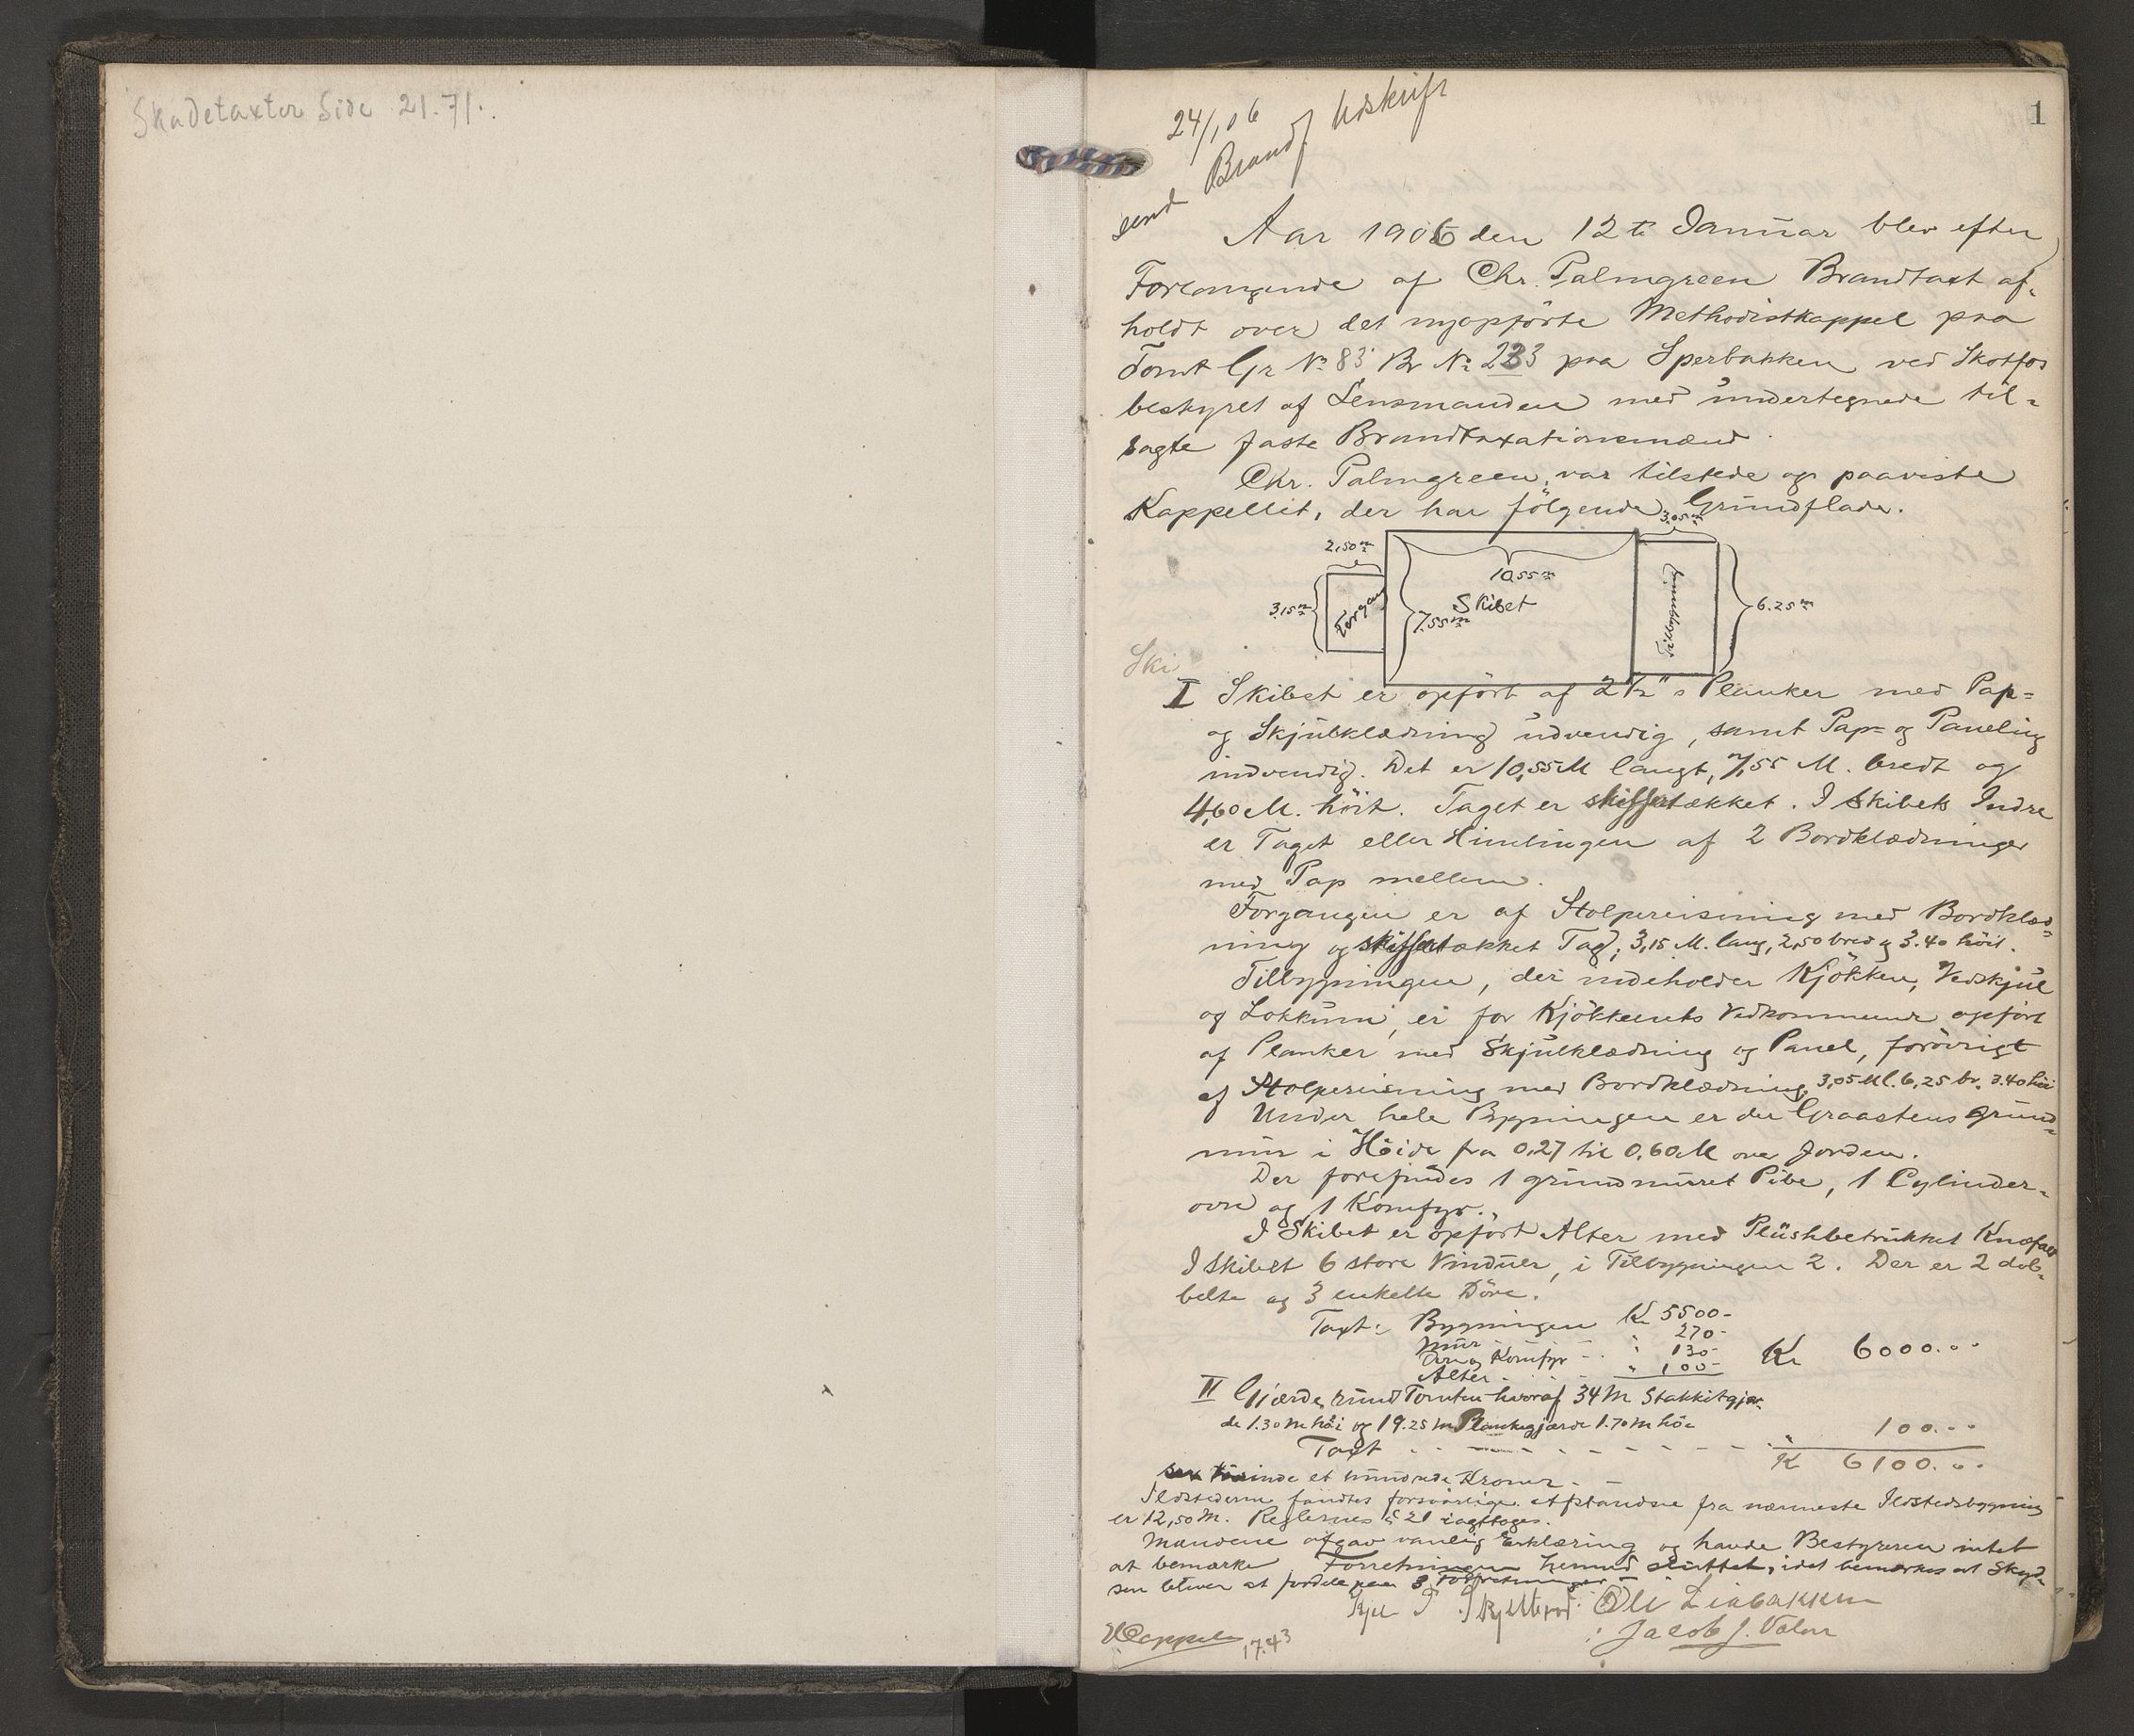 Skadetaxter Side 21. 71.
1
24/1 06
send Brandf. Udskrift
Aar 1906 den 12te Januar blev efter
Forlangende af Chr. Palmgreen Brandtaxt af-
holdt over det nyopførte Methodistkappel paa
Tomt Gr No 83 Br No 233 paa Sperbakken ved Skotfos
bestyret af Lensmanden med undertegnede til-
sagte faste Brandtaxationsmænd.
Chr. Palmgreen var tilstede og paaviste
Kappellet, der har følgende Grundflade.
3,05 m
2,50 m
10,55 m
Skibet
3,15 m
Forgang
7,55 m
Tilbygning
6.25 m
Ski
I Skibet er opført af 2 1/2" s Planker med Pap-
og Skjulklædning udvendig, samt Pap- og Paneling
indvendig. Det er 10,55 M langt, 7,55 M. bredt og
4,60 M. høit. Taget er skiffertækket. I Skibets Indre
er Taget eller Himlingen af 2 Bordklædninger
med Pap mellem.
Forgangen er af Stolpereisning med Bordklæd-
ning og skiffertækket Tag; 3,15 M. lang, 2,50 bred og 3.40 høit.
Tilbygningen, der indeholder Kjøkken, Vedskjul
og Lokkum, er for Kjøkkenets Vedkommende opført
af Planker med Skjulklædning og Panel, forøvrigt
af Stolpereisning med Bordklædning, 3,05 M l. 6,25 br. 3.40 høi
Under hele Bygningen er der Graastens grund-
mur i Høide fra 0,27 til 0,60 M over Jorden.
Der forefindes 1 grundmuret Pibe, 1 Cylinder-
ovn og 1 Komfyr.
I Skibet er opført Alter med Plüshbetrukket Knæfald
I Skibet 6 store Vinduer, i Tilbygningen 2. Der er 2 dob-
belte og 3 enkelte Døre.
Taxt: Bygningen Kr 5500-
Mur - - " 270-
Ovn og Komfyr - - " 130- Kr 6000...
Alter - . . - " 100-
II Gjærde rund Tomten hvoraf 34 M Stakkitgjær-
de 1.30 M høi og 19.25 M Plankegjærde 1.70 M høi
Taxt - - - - - - - - " 100...
K 6100...
sex tusinde et hundrede Kroner - -
Ildstederne fandtes forsvarlige. Afstandene fra nærmeste Ildstedsbygning
er 12,50 M. Reglernes § 21 iagttages.
Mændene afgav vanlig Erklæring og havde Bestyreren intet
at bemærke Forretningen hermed sluttet, idet bemærkes at Skyds-
sen bliver at fordele paa 3 Forretninger -
Ole Liabakken
Jacob J. Valen
HCappelen